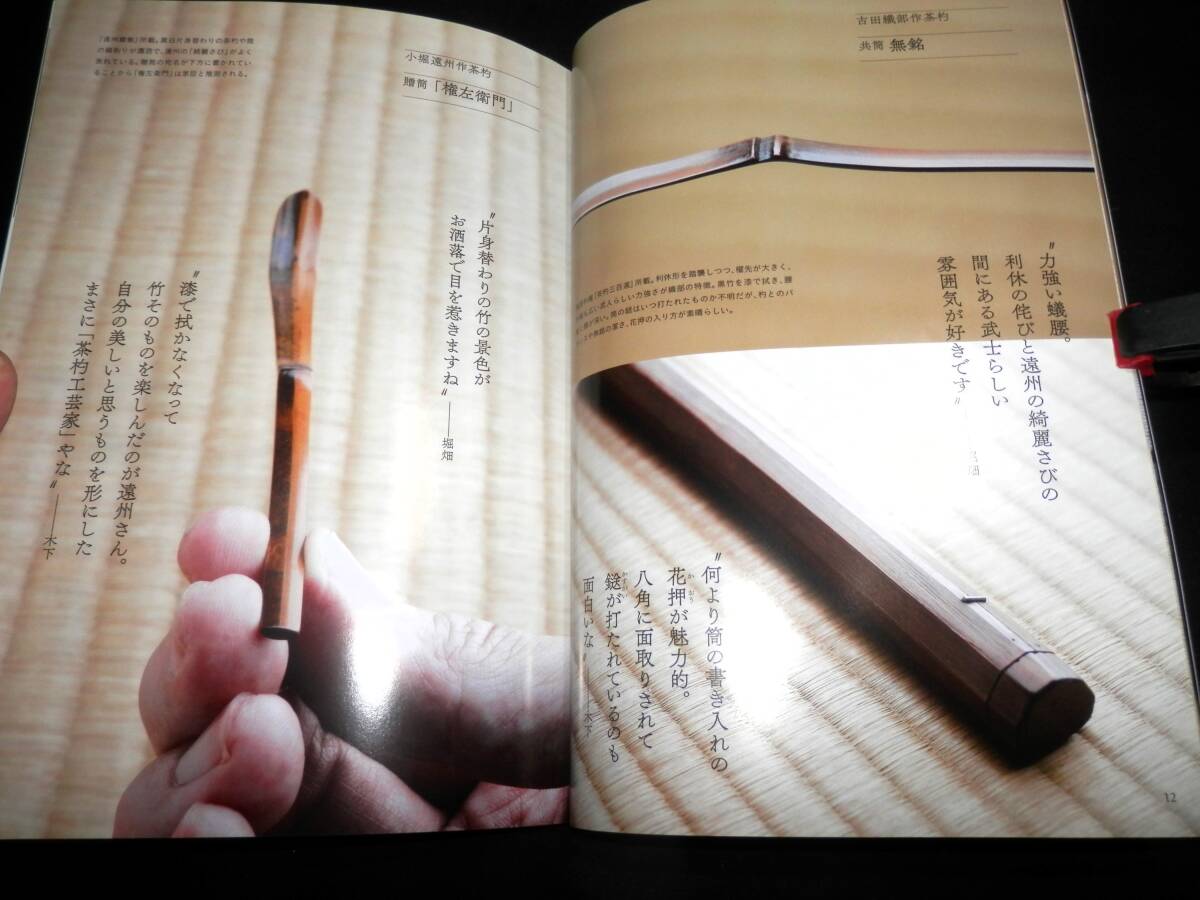 古田織部作茶杓
共筒 無銘
〝力強い蟻腰。
利休の侘びと遠州の綺麗さびの
間にある武士らしい
雰囲気が好きです〟
所載。利休形を踏襲しつつ、櫂先が大きく、
武人らしい力強さが織部の特徴。黒竹を漆で拭き、腰
筒の鎹はいつ打たれたものか不明だが、杓とのバ
花押の入り方が素晴らしい。
〝何より筒の書き入れの
花押が魅力的。
かおう
八角に面取りされて
鎹が打たれているのも
かすがい
面白いな〟――木下
12
小堀遠州作茶杓
贈筒「権左衛門」
所載。黒白片身替わりの茶杓や筒
の綺削りが洒落で、遠州の「綺麗さび」がよく
表れている。贈筒の宛名が下方に書かれてい
ることから「権左衛門」は茶匠と推測される。
〝片身替わりの竹の景色が
お洒落で目を惹きますね〟――堀畑
〝漆で拭かなくなって
竹そのものを楽しんだのが遠州さん。
自分の美しいと思うものを形にした
まさに「茶杓工芸家」やな〟――木下